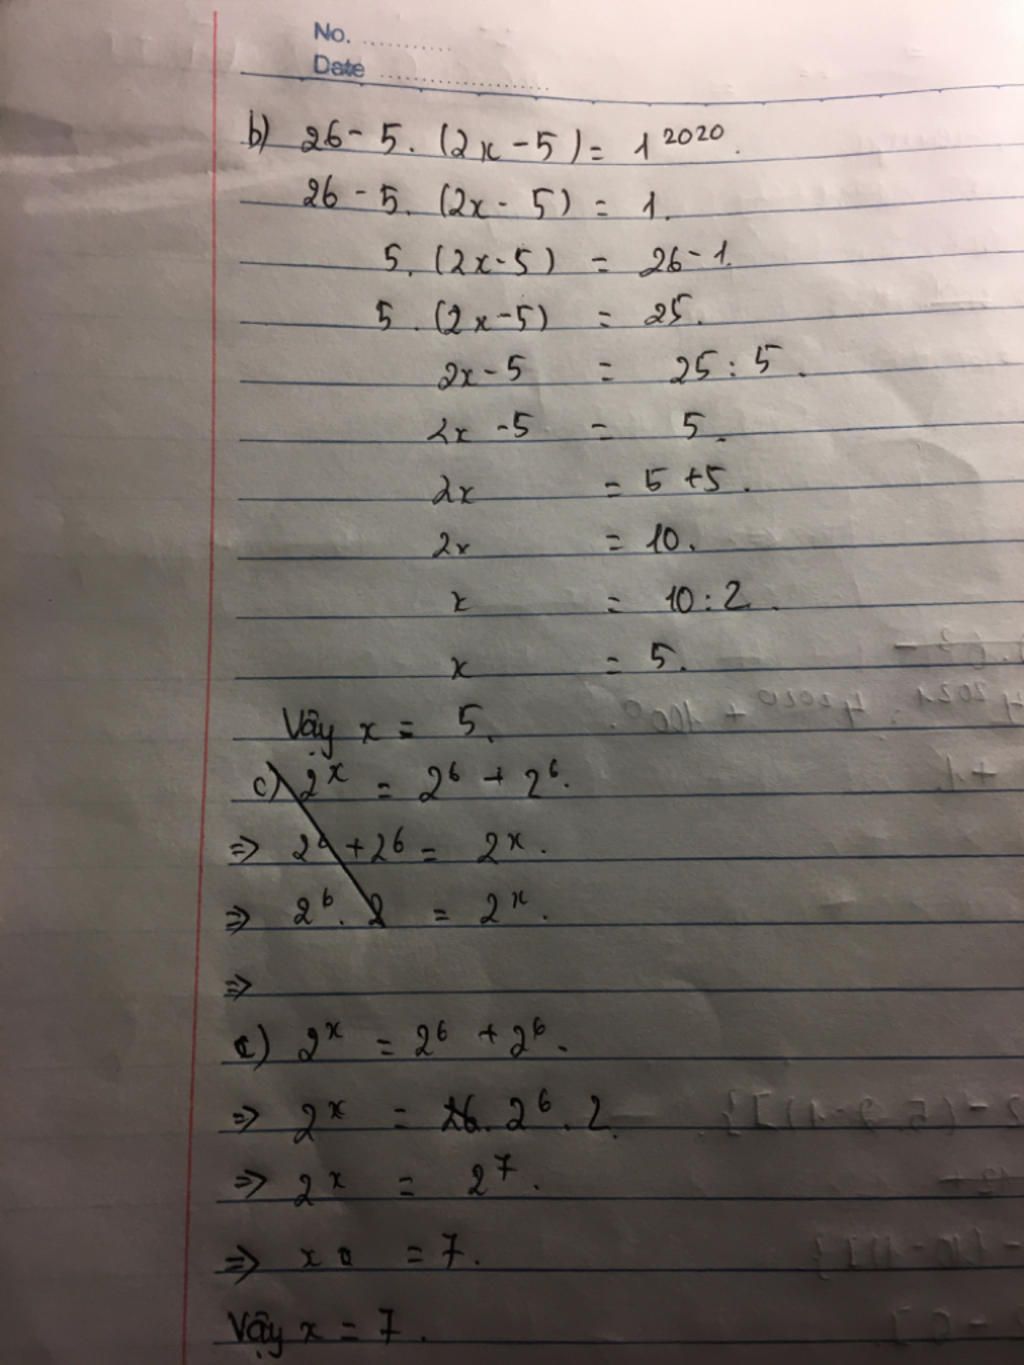 No. ............
Date ........................
b) 26 - 5. (2x - 5) = 1²⁰²⁰.
26 - 5. (2x - 5) = 1.
5. (2x - 5) = 26 - 1.
5. (2x - 5) = 25.
2x - 5 = 25 : 5.
2x - 5 = 5.
2x = 5 + 5.
2x = 10.
x = 10 : 2.
x = 5.
Vậy x = 5.
c) 2ˣ = 2⁶ + 2⁶.
=> 2⁶ + 2⁶ = 2ˣ.
=> 2⁶. 2 = 2ˣ.
=>
c) 2ˣ = 2⁶ + 2⁶.
=> 2ˣ = 2⁶. 2.
=> 2ˣ = 2⁷.
=> x = 7.
Vậy x = 7.